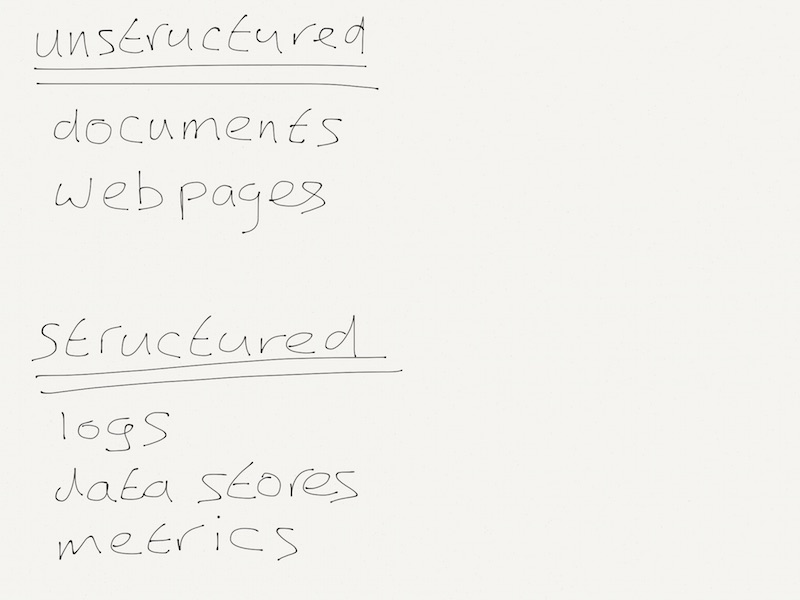 unstructured
documents
web pages
structured
logs
data stores
metrics